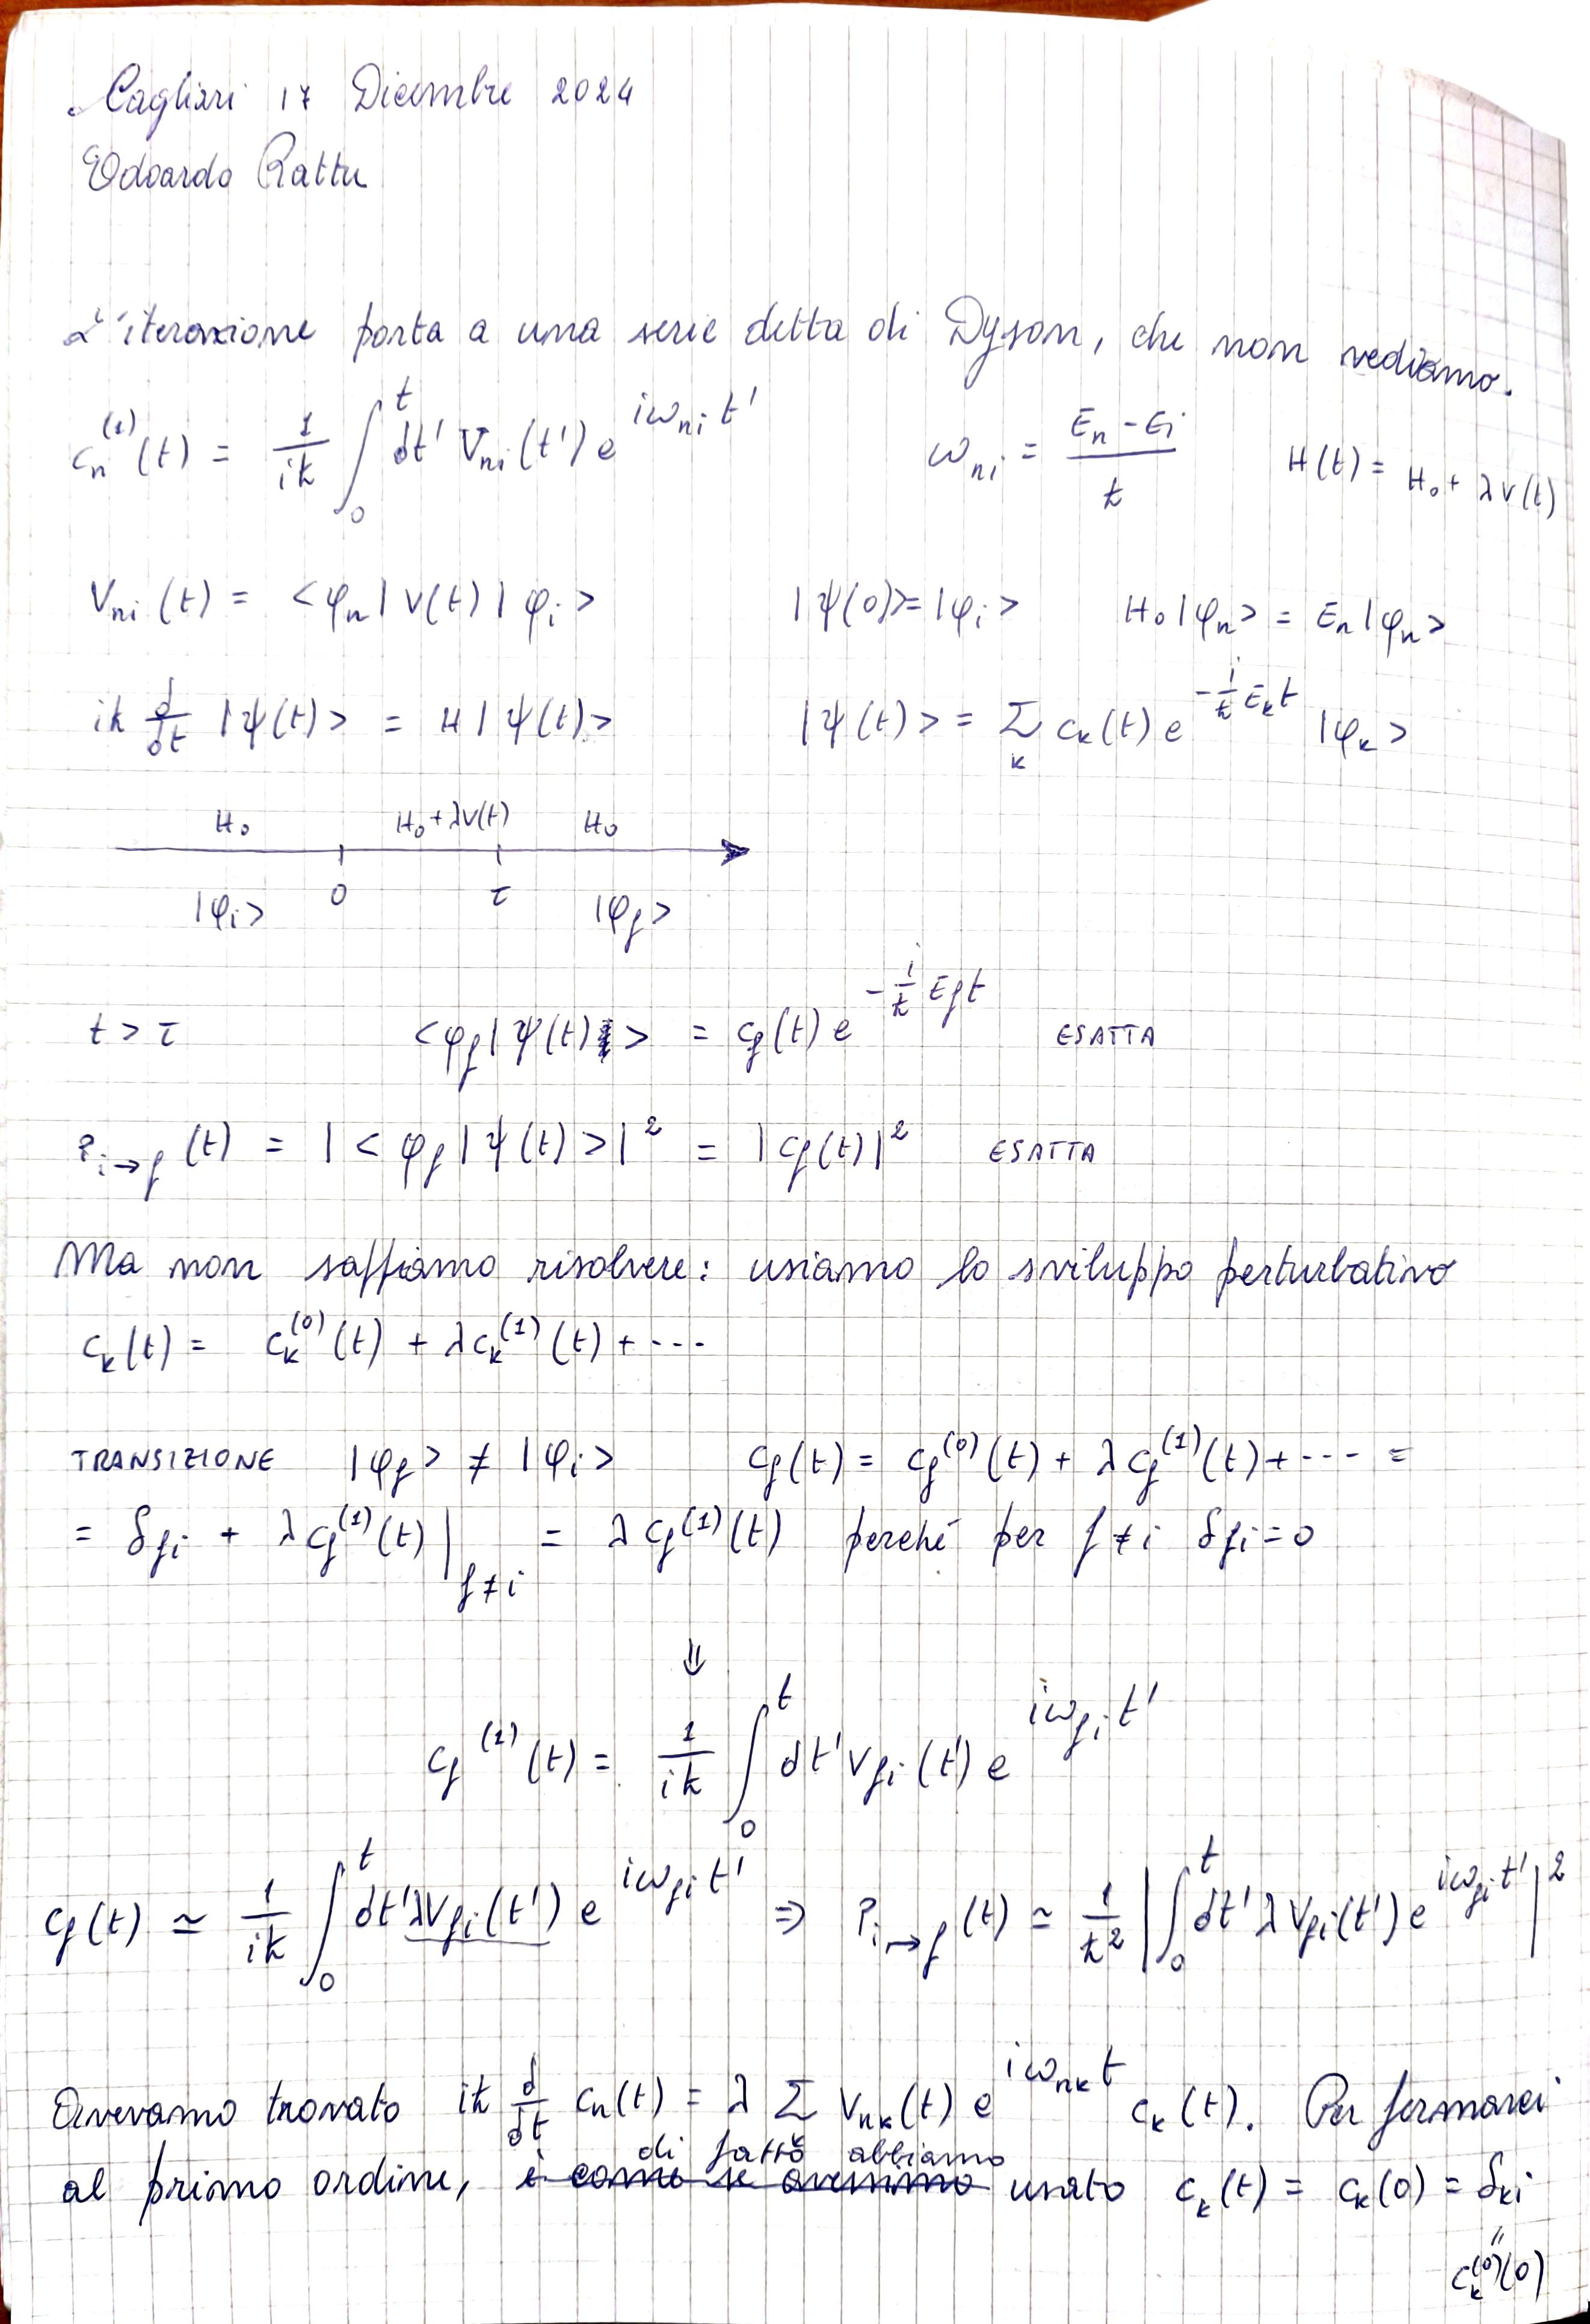 Cagliari 17 Dicembre 2024
Edoardo Rattu
L'iterazione porta a una serie detta di Dyson, che non vediamo.
c_n^(1)(t) = 1/(iħ) ∫_0^t dt' V_ni(t') e^(iω_ni t')    ω_ni = (E_n - E_i)/ħ    H(t) = H_0 + λV(t)
V_ni(t) = <φ_n|V(t)|φ_i>    |ψ(0)> = |φ_i>    H_0|φ_n> = E_n|φ_n>
iħ d/dt |ψ(t)> = H|ψ(t)>    |ψ(t)> = Σ_k c_k(t) e^(-i/ħ E_k t) |φ_k>
H_0    H_0 + λV(t)    H_0
|φ_i>    0    τ    |φ_f>
t > τ    <φ_f|ψ(t)> = c_f(t) e^(-i/ħ E_f t)    ESATTA
P_i→f(t) = |<φ_f|ψ(t)>|^2 = |c_f(t)|^2    ESATTA
Ma non sappiamo risolvere: usiamo lo sviluppo perturbativo
c_k(t) = c_k^(0)(t) + λc_k^(1)(t) + ···
TRANSIZIONE    |φ_f> ≠ |φ_i>    c_f(t) = c_f^(0)(t) + λc_f^(1)(t) + ··· =
= δ_fi + λc_f^(1)(t)|_f≠i = λc_f^(1)(t) perché per f ≠ i δ_fi = 0
⇓
c_f^(1)(t) = 1/(iħ) ∫_0^t dt' V_fi(t') e^(iω_fi t')
c_f(t) ≃ 1/(iħ) ∫_0^t dt' λV_fi(t') e^(iω_fi t') ⇒ P_i→f(t) ≃ 1/ħ^2 |∫_0^t dt' λV_fi(t') e^(iω_fi t')|^2
Avevamo trovato iħ d/dt c_n(t) = λ Σ_k V_nk(t) e^(iω_nk t) c_k(t). Per fermarci
al primo ordine, di fatto abbiamo usato c_k(t) = c_k(0) = δ_ki
= c_k^(0)(0)